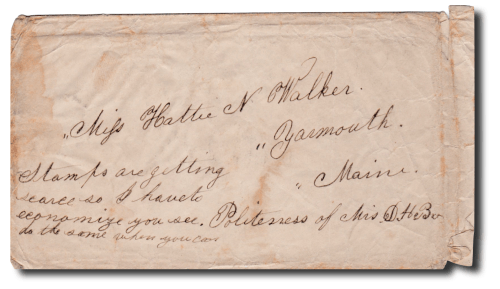 „Miss Hattie N Walker.
„ Yarmouth.
„ Maine.
Stamps are getting
scarce so I have to
economize you see. Politeness of Mrs.
do the same when you can